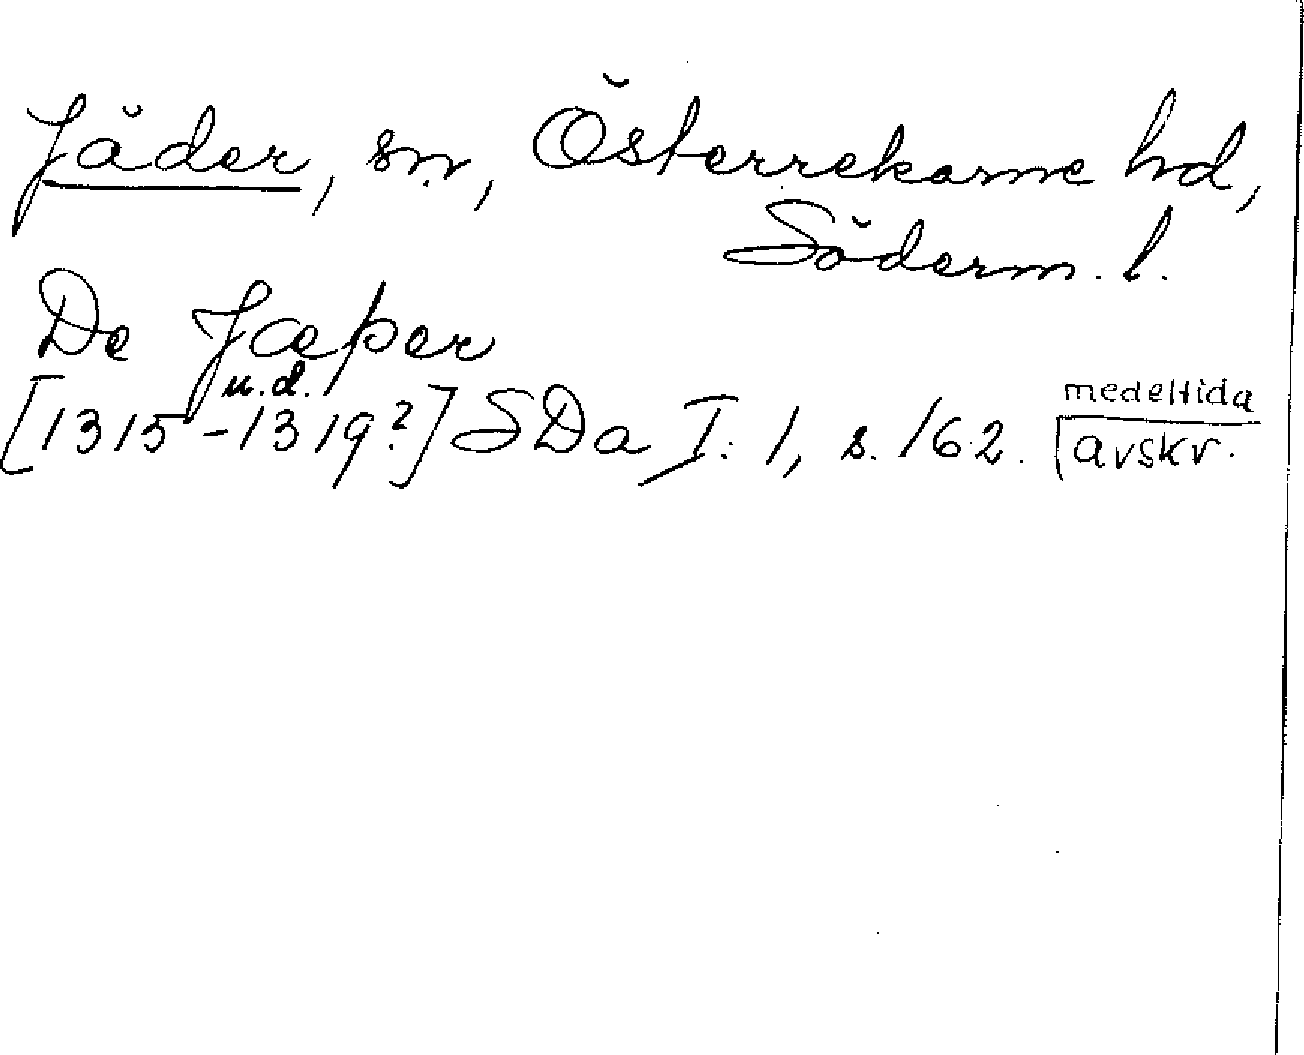 Jäder, sn, Österrekarne hd,
Söderm. l.
De Jæþer
u.d.
[1315-1319?] SDa I: 1, s. 162. medeltida
avskr.